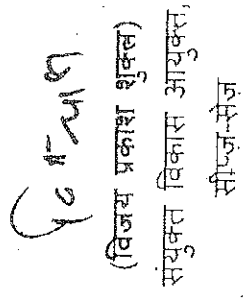 (विजय प्रकाश शुक्ल)
संयुक्त विकास आयुक्त,
सीप्ज़-सेज़